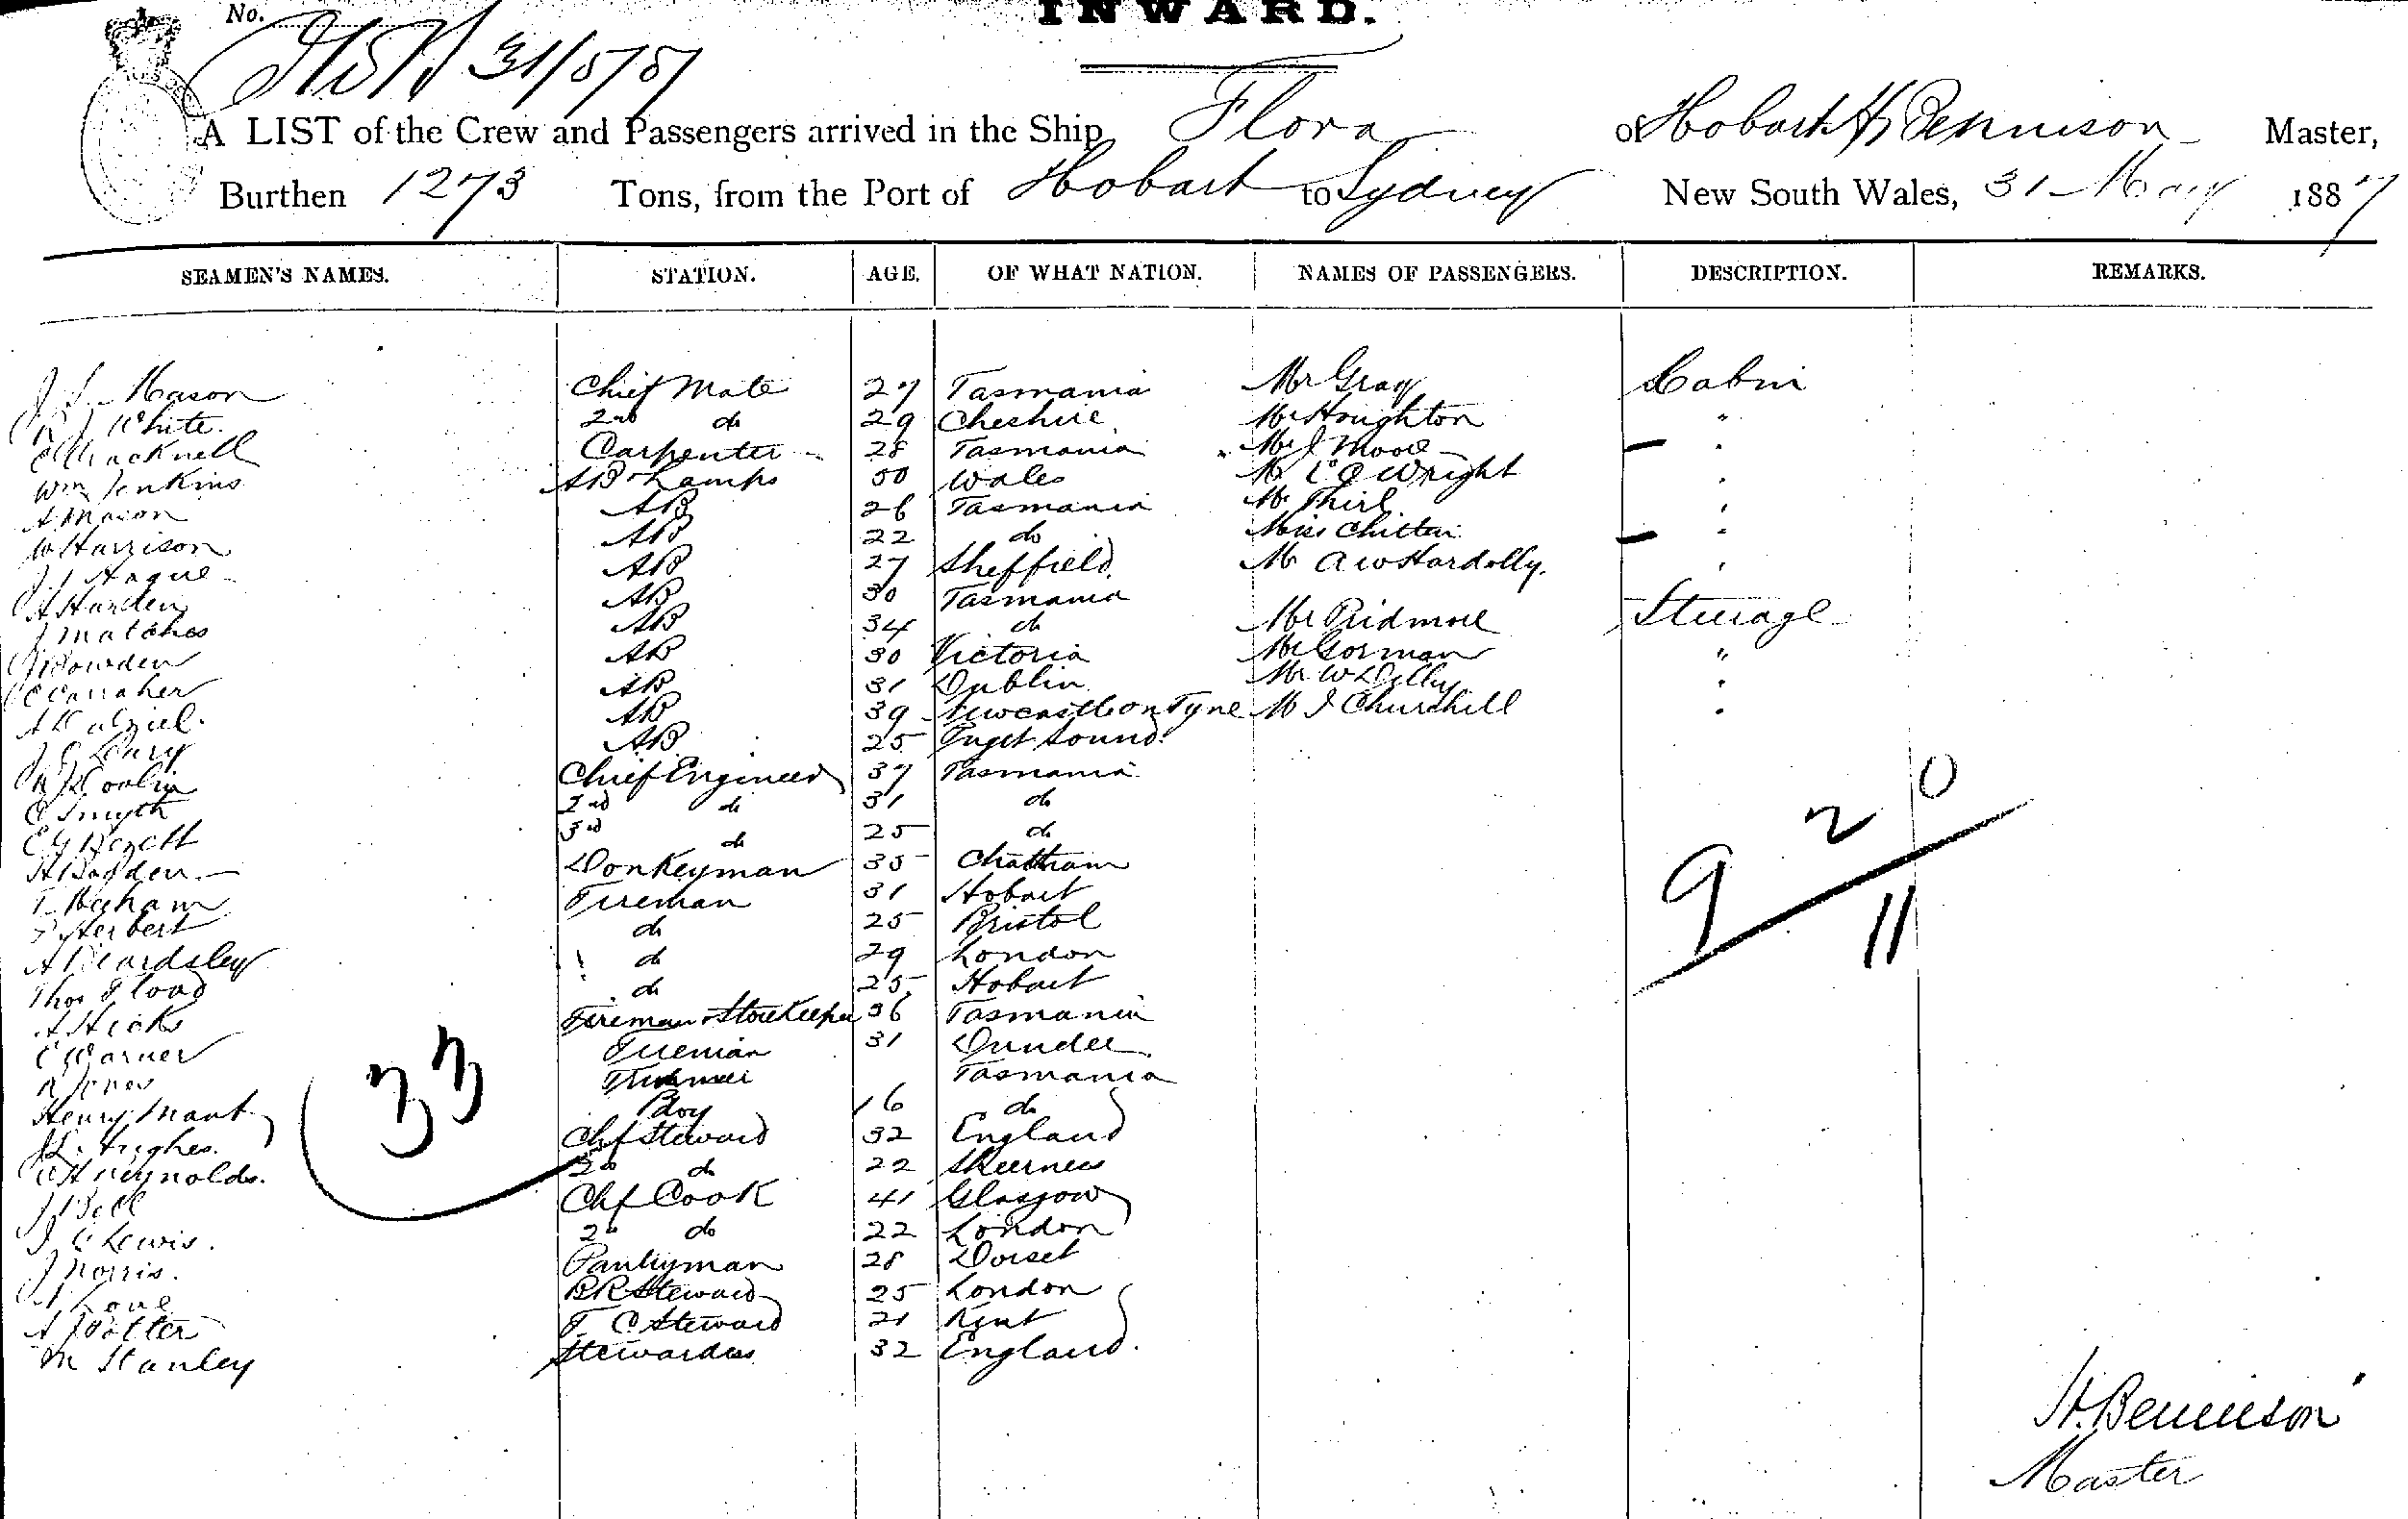 No.
INWARD.
31/5/87
A LIST of the Crew and Passengers arrived in the Ship Flora of Hobart H Bennison Master,
Burthen 1273 Tons, from the Port of Hobart to Sydney New South Wales, 31 May 1887
SEAMEN'S NAMES. STATION. AGE. OF WHAT NATION. NAMES OF PASSENGERS. DESCRIPTION. REMARKS.
Mason Chief Mate 27 Tasmania Mr Gray Cabin
White. 2nd do 29 Cheshire Mr Houghton "
Cracknell Carpenter 28 Tasmania Mr J Moore "
Wm Jenkins AB & Lamps 50 Wales Wright "
A Mason AB 26 Tasmania Mr Thirl "
W Harrison AB 22 do Miss "
Hague AB 27 Sheffield A W "
A Harden AB 30 Tasmania
J Matches AB 34 do Mr Pridmore Steerage
J Bowden AB 30 Victoria Mr Gorman "
AB 31 Dublin Mr W "
A Dalziel. AB 39 Newcastle on Tyne J Churchill "
J O Leary AB 25 Puget Sound
Chief Engineer 37 Tasmania
Smyth 2nd do 31 do
3rd do 25 do
Donkeyman 35 Chatham
Fireman 31 Hobart
Herbert do 25 Bristol
A Beardsley do 29 London
Thos Flood do 25 Hobart
A Hicks Fireman & Storekeeper 36 Tasmania
Fireman 31 Dundee
Jones Trimmer Tasmania
Henry Mant Boy 16 do
Hughes. Chf Steward 32 England
Reynolds. 2nd do 22 Sheerness
J Bell Chf Cook 41 Glasgow
J C Lewis. 2nd do 22 London
J Norris. Pantryman 28 Dorset
Love BR Steward 25 London
A Potter F C Steward 21 Kent
M Stanley Stewardess 32 England.
33
9 2 0
11
H. Bennison
Master